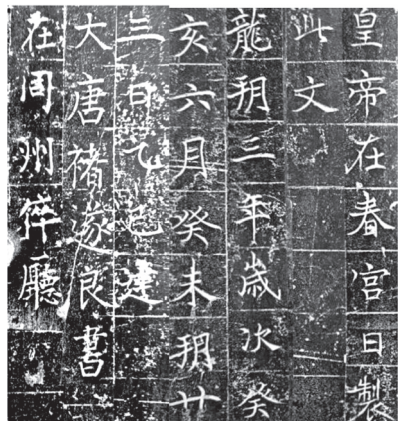 皇帝在春宮日製
此文
龍朔三年歲次癸
亥六月癸未朔廿
三日乙巳建
大唐褚遂良書
在同州倅廳